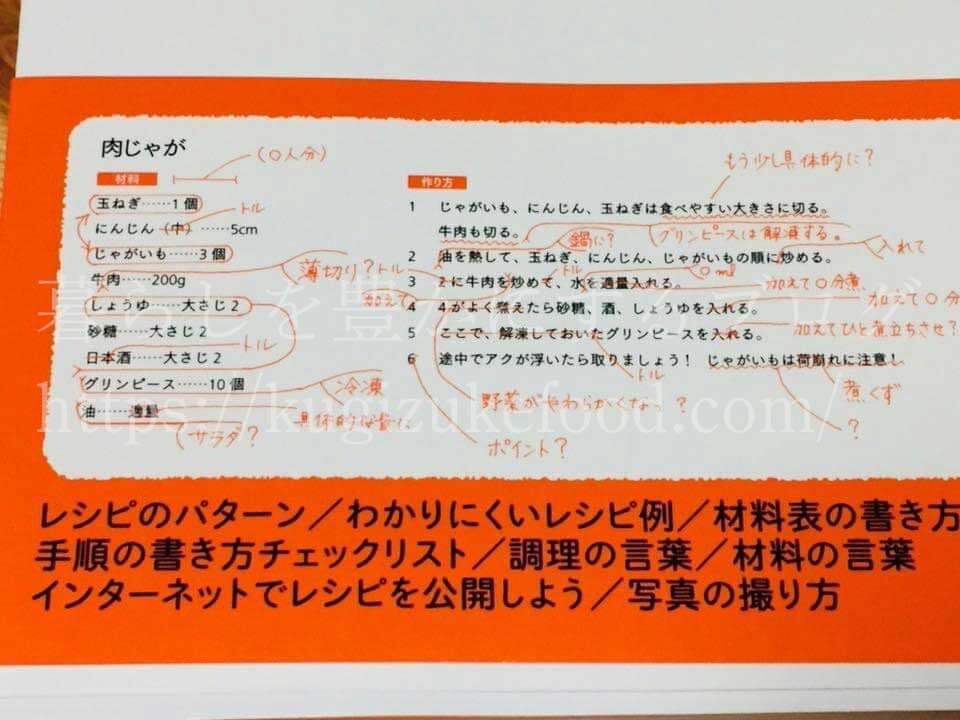 肉じゃが
(〇人分)
材料
玉ねぎ……1個
トル
にんじん(中)……5cm
じゃがいも……3個
牛肉……200g
薄切り?
しょうゆ……大さじ2
砂糖……大さじ2
日本酒……大さじ2
トル
グリンピース……10個
冷凍
油……適量
具体的な量に
サラダ?
もう少し具体的に?
作り方
1 じゃがいも、にんじん、玉ねぎは食べやすい大きさに切る。
牛肉も切る。
グリンピースは解凍する。
鍋に?
入れて
2 油を熱して、玉ねぎ、にんじん、じゃがいもの順に炒める。
トル
トル
〇ml
3 2に牛肉を炒めて、水を適量入れる。
加えて〇分煮
加えて
4 4がよく煮えたら砂糖、酒、しょうゆを入れる。
加えて〇分
5 ここで、解凍しておいたグリンピースを入れる。
加えてひと煮立ちさせ?
6 途中でアクが浮いたら取りましょう! じゃがいもは荷崩れに注意!
トル
煮くず
野菜がやわらかくなっ?
?
ポイント?
暮らしを豊かにするブログ
https://kugizukefood.com/
レシピのパターン/わかりにくいレシピ例/材料表の書き方
手順の書き方チェックリスト/調理の言葉/材料の言葉
インターネットでレシピを公開しよう/写真の撮り方